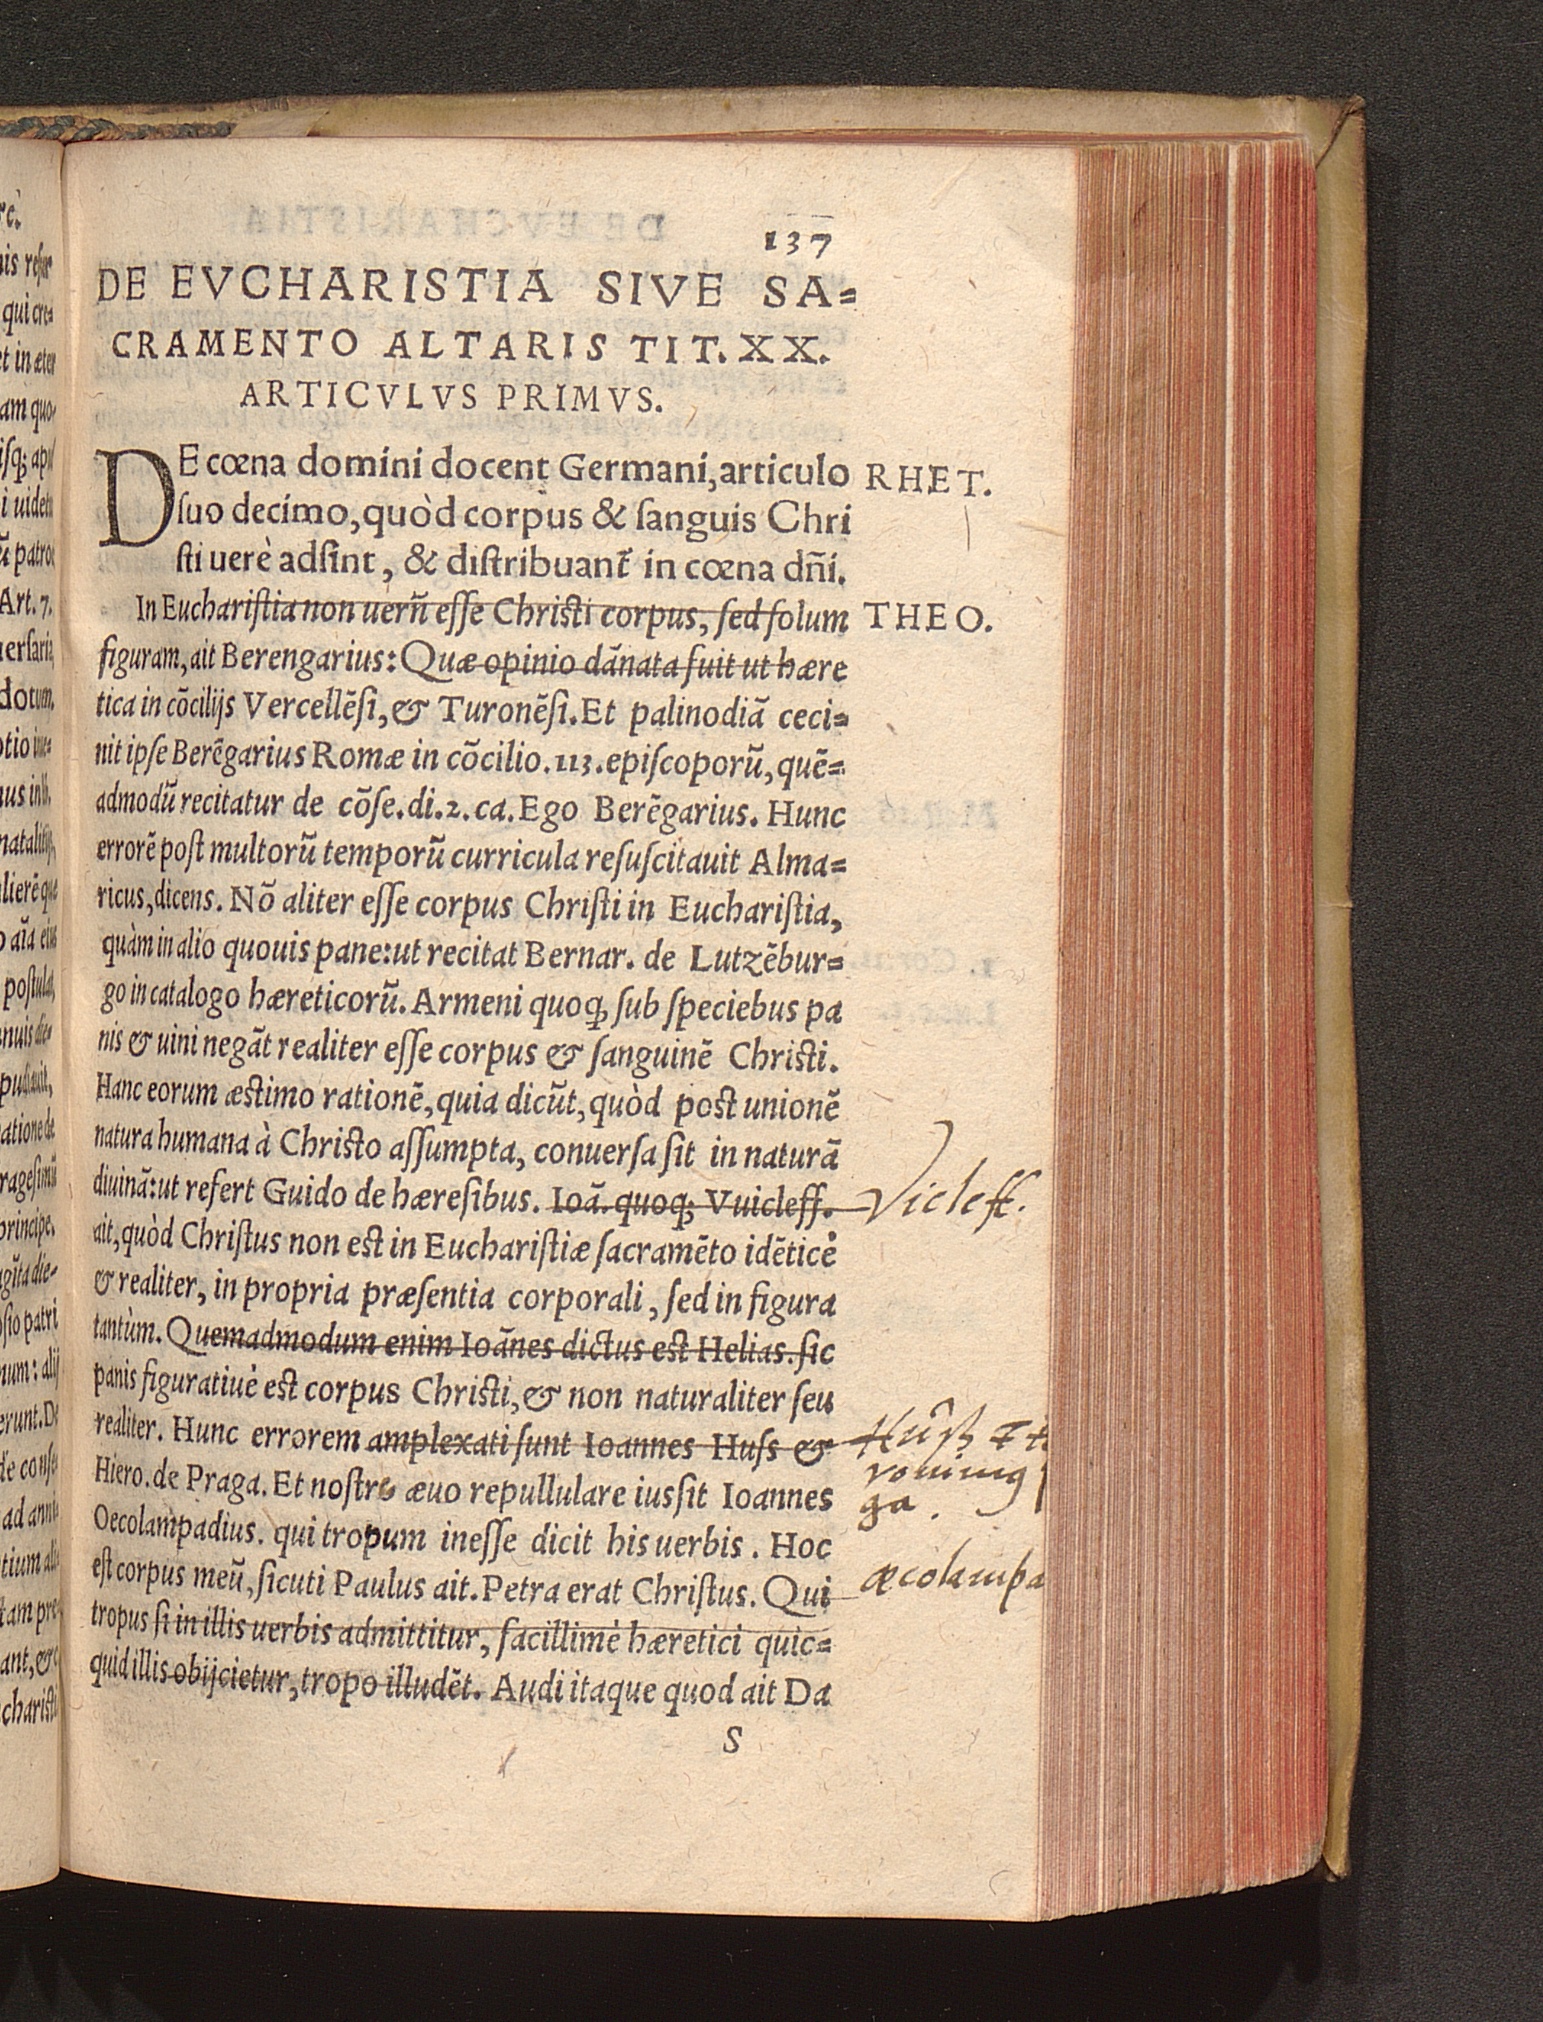 137
DE EVCHARISTIA SIVE SA=
CRAMENTO ALTARIS TIT. XX.
ARTICVLVS PRIMVS.
DE cœna domini docent Germani, articulo
suo decimo, quòd corpus & sanguis Chri
sti uerè adsint, & distribuant̃ in cœna dñi.
RHET.
In Eucharistia non uerũ esse Christi corpus, sed solum
THEO.
figuram, ait Berengarius: Quæ opinio dãnata fuit ut hære
tica in cõcilijs Vercellẽsi, & Turonẽsi. Et palinodiã ceci=
nit ipse Berẽgarius Romæ in cõcilio .113. episcoporũ, quẽ=
admodũ recitatur de cõse. di. 2. ca. Ego Berẽgarius. Hunc
errorẽ post multorũ temporũ curricula resuscitauit Alma=
ricus, dicens. Nõ aliter esse corpus Christi in Eucharistia,
quàm in alio quouis pane: ut recitat Bernar. de Lutzẽbur=
go in catalogo hæreticorũ. Armeni quoq; sub speciebus pa
nis & uini negãt realiter esse corpus & sanguinẽ Christi.
Hanc eorum æstimo rationẽ, quia dicũt, quòd post unionẽ
natura humana à Christo assumpta, conuersa sit in naturã
diuinã: ut refert Guido de hæresibus. Ioã. quoq; Vuicleff.
Vicleff.
ait, quòd Christus non est in Eucharistiæ sacramẽto idẽticè
& realiter, in propria præsentia corporali, sed in figura
tantùm. Quemadmodum enim Ioãnes dictus est Helias. sic
panis figuratiuè est corpus Christi, & non naturaliter seu
realiter. Hunc errorem amplexati sunt Ioannes Huss &
Hiero. de Praga. Et nostro æuo repullulare iussit Ioannes
Oecolampadius. qui tropum inesse dicit his uerbis. Hoc
est corpus meũ, sicuti Paulus ait. Petra erat Christus. Qui
œcolampa
tropus si in illis uerbis admittitur, facillimè hæretici quic=
quid illis obijcietur, tropo illudẽt. Audi itaque quod ait Da
S